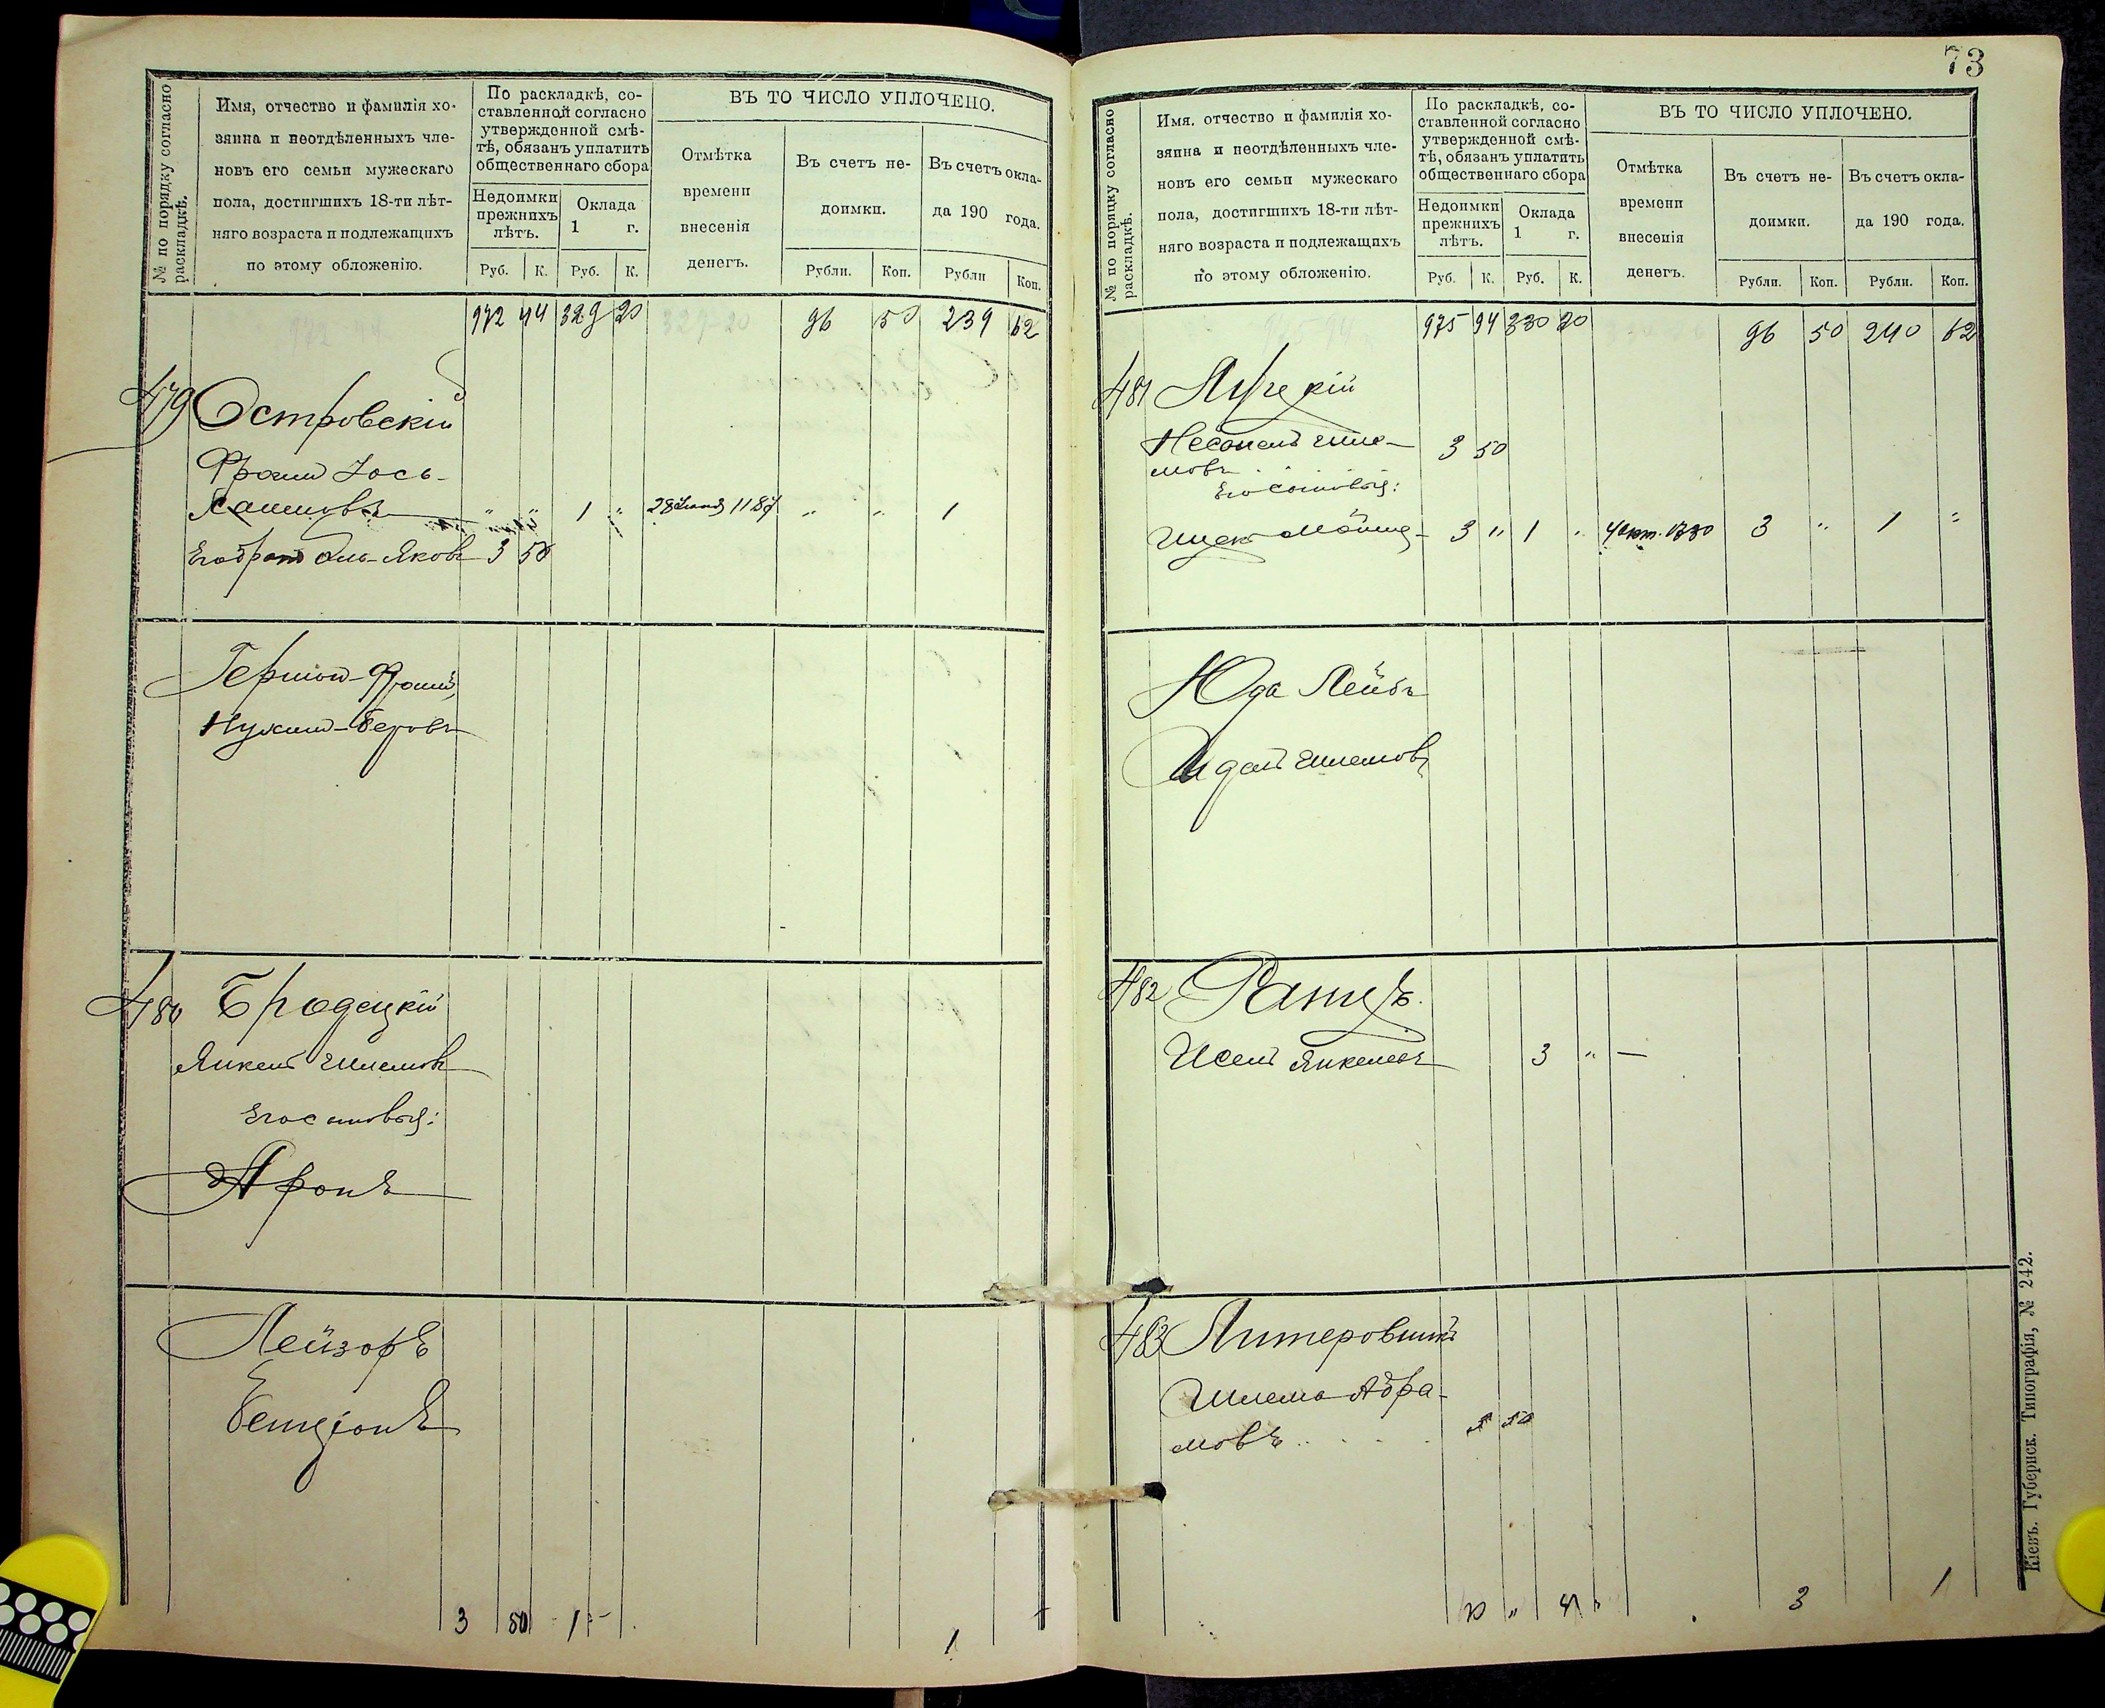 № по порядку согласно
раскладкѣ.
Имя, отчество и фамилія хо-
зяина и неотдѣленныхъ чле-
новъ его семьи мужескаго
пола, достигшихъ 18-ти лѣт-
няго возраста и подлежащихъ
по этому обложенію.
По раскладкѣ, со-
ставленной согласно
утвержденной смѣ-
тѣ, обязанъ уплатить
общественнаго сбора
Недоимки
прежнихъ
лѣтъ.
Оклада
1 г.
Руб. К. Руб. К.
ВЪ ТО ЧИСЛО УПЛОЧЕНО.
Отмѣтка
времени
внесенія
денегъ.
Въ счетъ не-
доимки.
Въ счетъ окла-
да 190 года.
Рубли. Коп. Рубли Коп.
972 44 329 20 96 50 239 62
479 Островскій
Фроим Іось-
Хаимовъ " " 1 " 28 " " 1
Его братъ Эль-Яковъ 3 50
Гершон-Фроим,
Нухим-Беровъ
480 Бродецкій
Янкель Шлемовъ
Его сыновья:
Аронъ
Лейзоръ
Бенціонъ
3 50 1 - 1
73
№ по порядку согласно
раскладкѣ.
Имя. отчество и фамилія хо-
зяина и неотдѣленныхъ чле-
новъ его семьи мужескаго
пола, достигшихъ 18-ти лѣт-
няго возраста и подлежащихъ
по этому обложенію.
По раскладкѣ, со-
ставленной согласно
утвержденной смѣ-
тѣ, обязанъ уплатить
общественнаго сбора
Недоимки
прежнихъ
лѣтъ.
Оклада
1 г.
Руб. К. Руб. К.
ВЪ ТО ЧИСЛО УПЛОЧЕНО.
Отмѣтка
времени
внесенія
денегъ.
Въ счетъ не-
доимки.
Въ счетъ окла-
да 190 года.
Рубли. Коп. Рубли. Коп.
975 94 330 20 96 50 240 62
481 Луцкій
Шле- 3 50
мовъ
Его сыновья:
Ицек Мошко - 3 " 1 " 4 окт. 3 " 1 "
Юда Лейбъ
Идель Шлемовъ
482 Ратцъ.
Исель Янкелевъ 3 " —
483
Шлема Абра-
мовъ
3 1
Кіевъ. Губернск. Типографія, № 242.